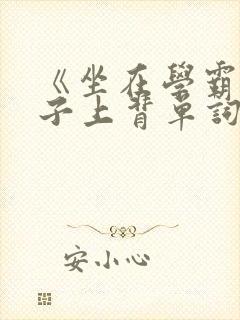 《坐在學霸
子上背單詞
安小心